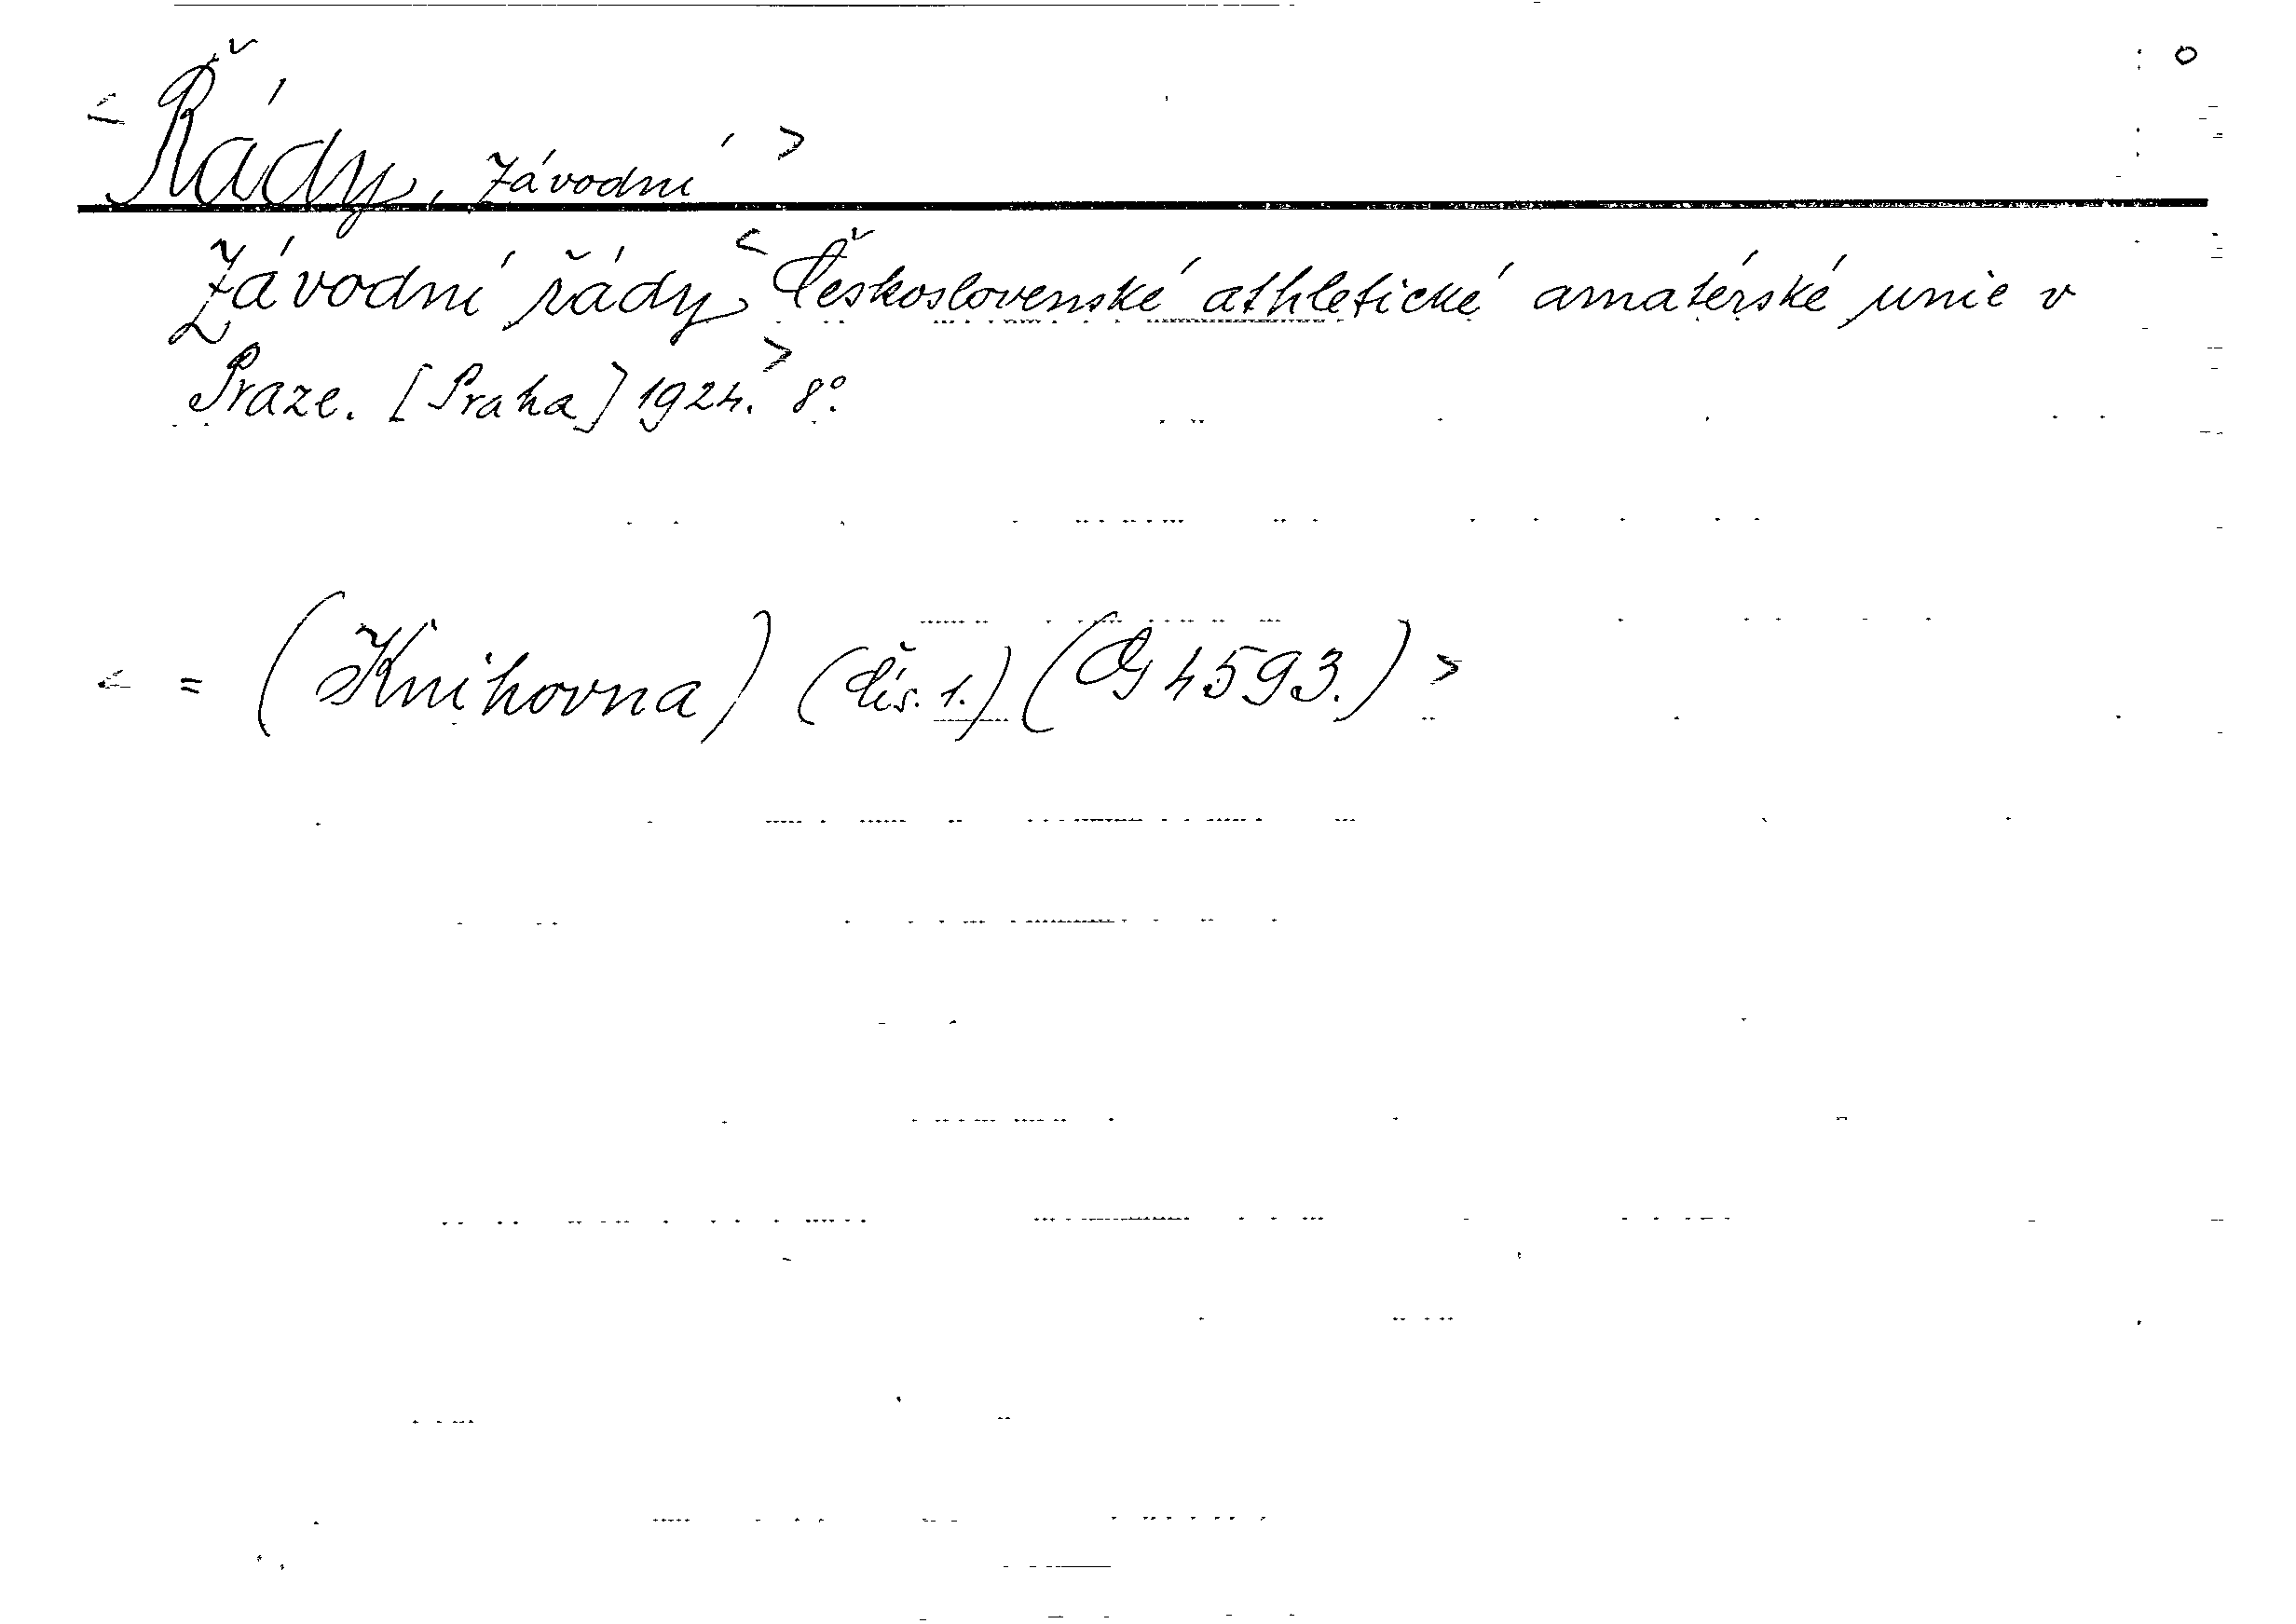 <Řády, závodní>
Závodní řády <Československé athletické amatérské unie v
Praze. [Praha] 1924.> 8°.
< = (Knihovna) (čís. 1.) (Og 4593.) >